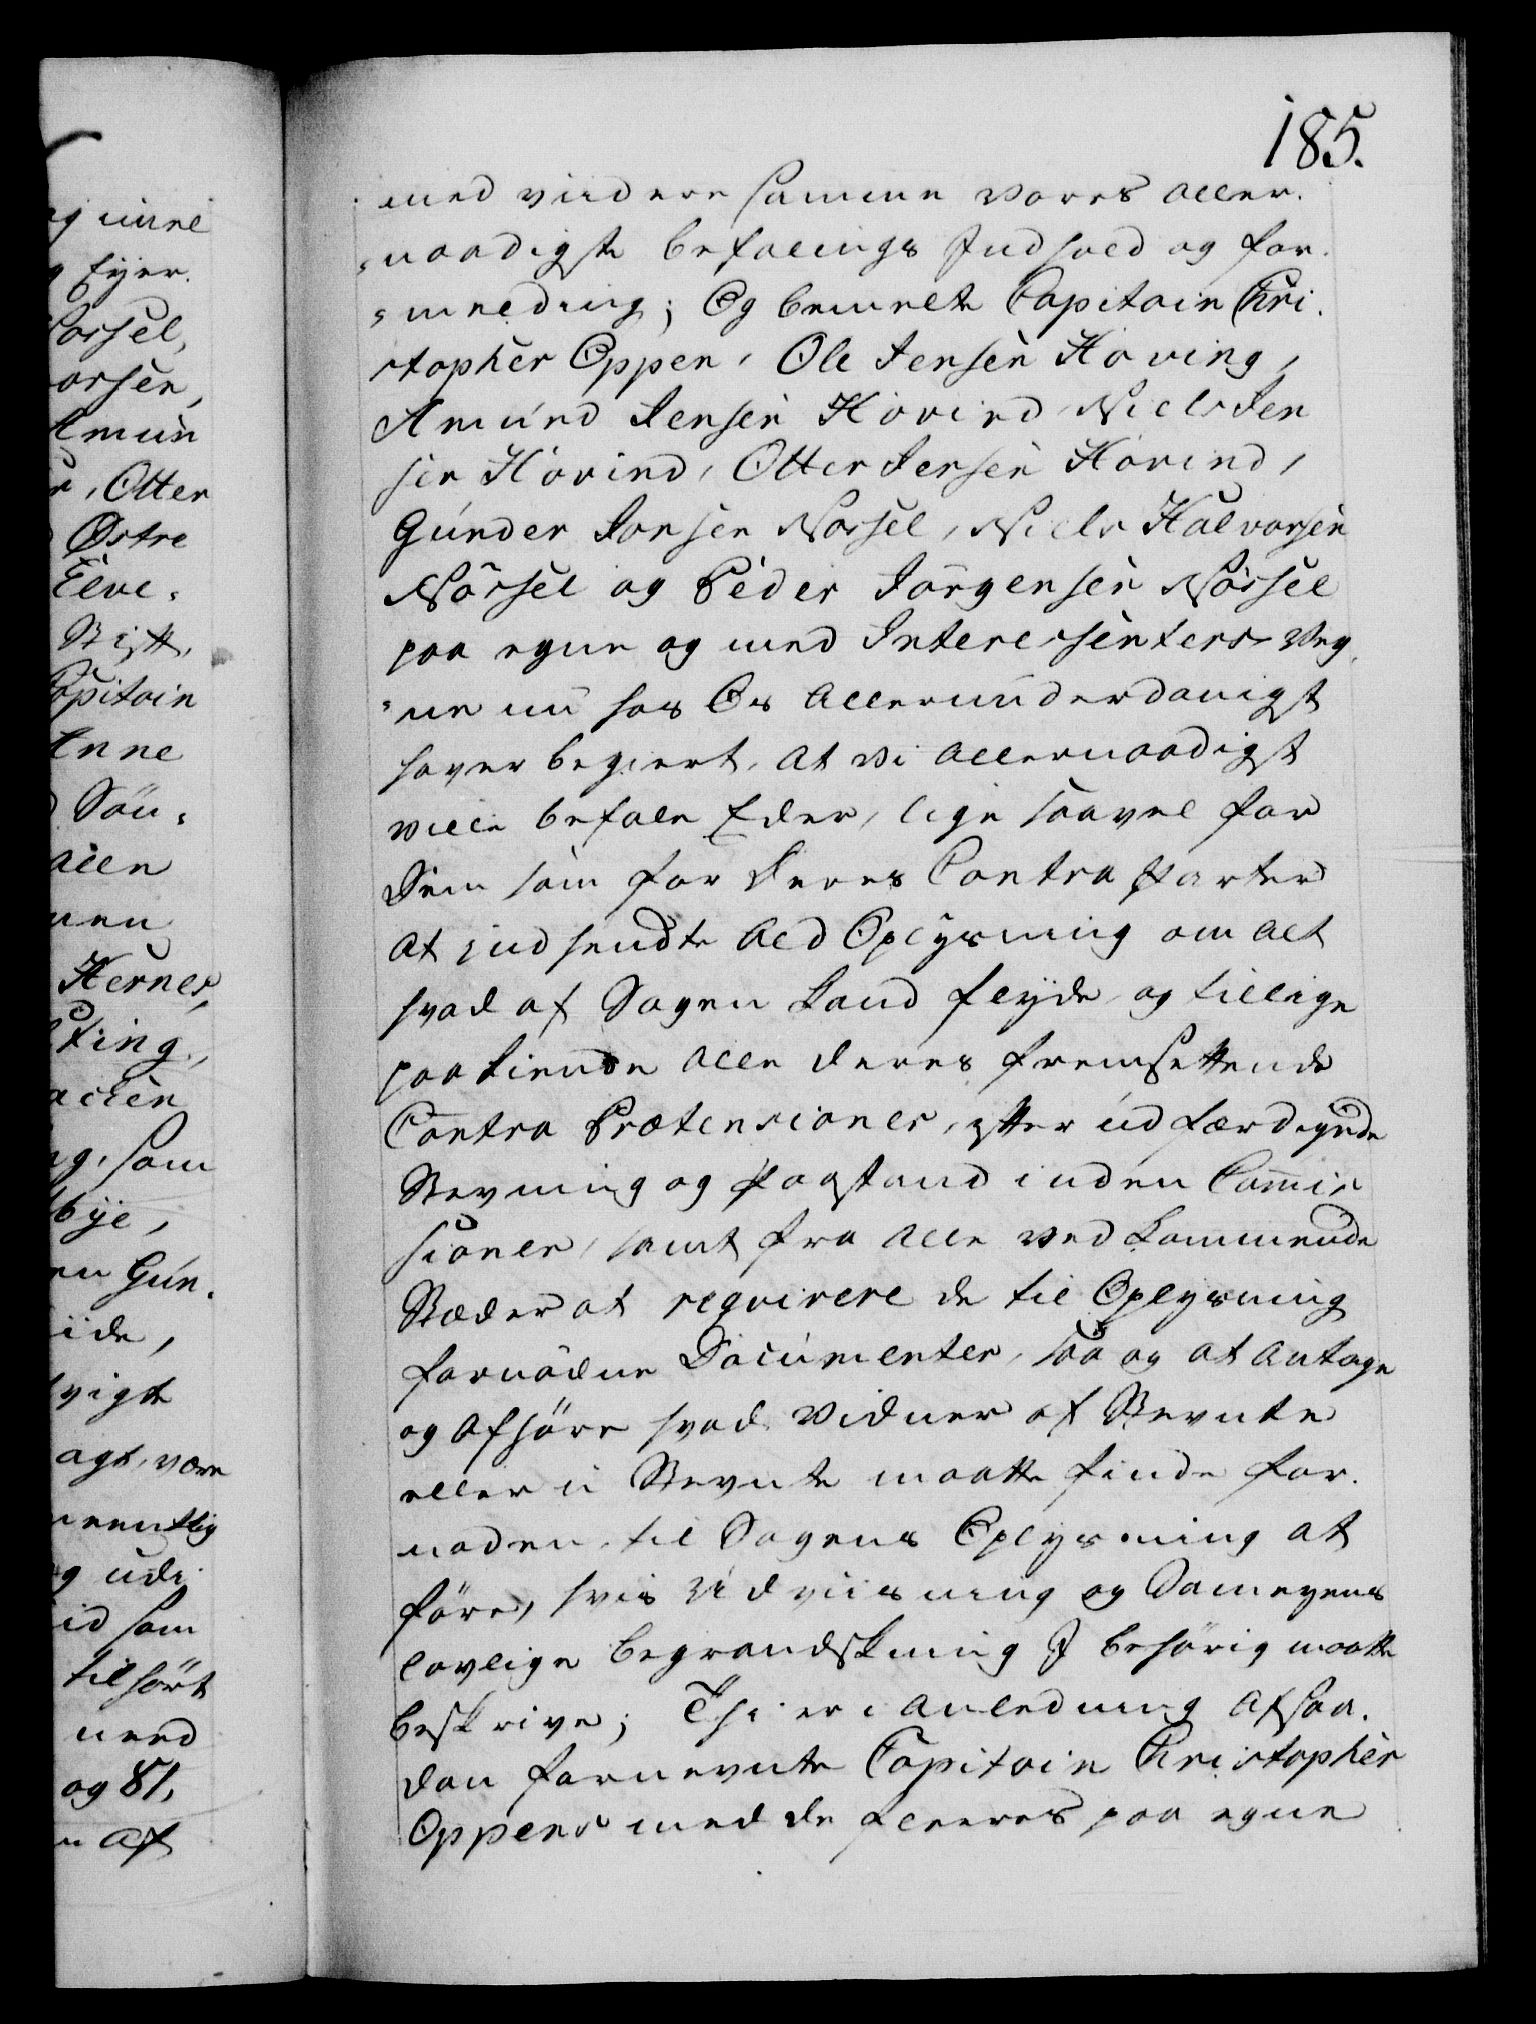 185.
med viidere samme Vores aller-
naadigste Befalings Indhold og for-
meldning; Og bemelte Capitain Chri-
stopher Oppen, Ole Jensen Hoving,
Amund Jensen Hovind Niels Jen
sen Hovind, Otter Jensen Hovind,
Gunder Jonsen Norsel, Niels Halvorsen
Nörsel og Peder Jörgensen Nörsel
paa egne og med Interessenters Veg
ne nu hos Os allerunderdanigst
haver begiert, at Vi allernaadigst
ville befale Eder, lige saavel for
Dem som for Deres Contra Parter
at indhendte ald Oplysning om alt
hvad af Sagen kand flyde og tillige
paakiende alle deres fremsettende
Contra Prætensioner, efter udfærdigede
Stevning og Paastand inden Commis
sionen, samt fra alle vedkommende
Stæder at reqvirere de til Oplysning
fornödne Documenter, saa og at antage
og afhöre hvad Vidner af Stevnte
eller u Stevnte maatte finde for-
noden, til Sagens Oplysning at
före, hvis Udviisning og Damegens
lovlige begrandskning I behörig maatte
beskrive; Thi er i Anledning af saa-
dan fornevnte Capitain Christopher
Oppens med de fleeres paa egne